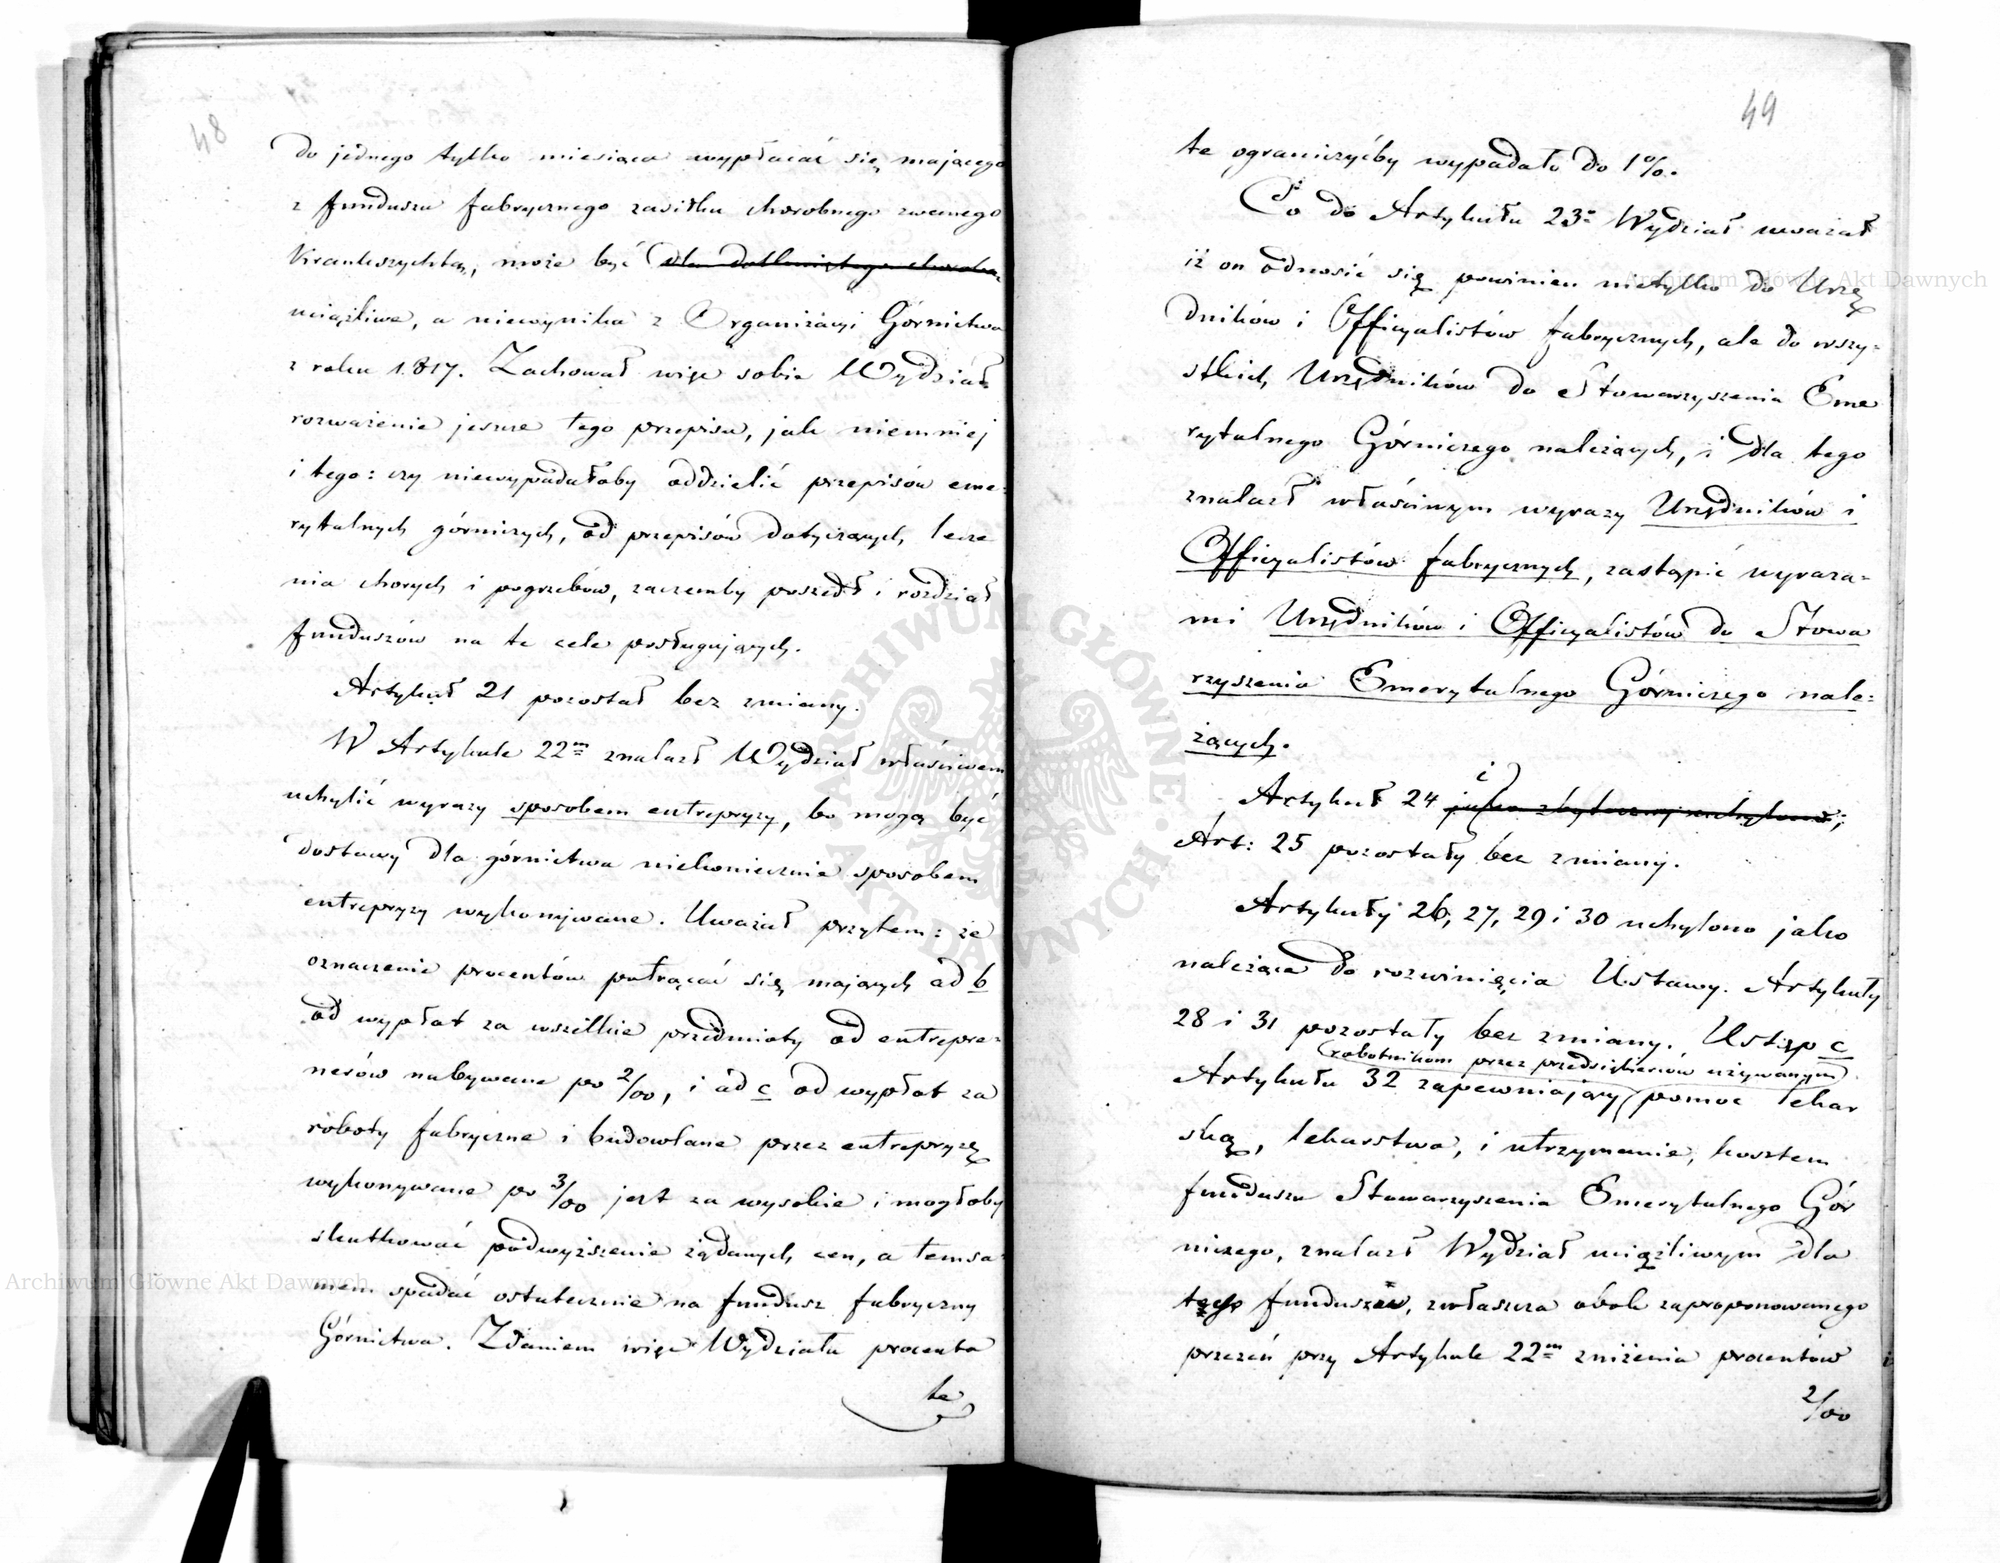 48
do jednego tylko miesiąca wypłacać się mającego
z funduszu fabrycznego zasiłku chorobnego zwanego
Krankszychtą, może być dla dotkniętego chorobą
uciążliwe, a niewynika z Organizacyi Górnictwa
z roku 1817. Zachował więc sobie Wydział
rozważenie jeszcze tego przepisu, jak niemniej
i tego: czy niewypadałoby oddzielić przepisów eme=
rytalnych górniczych, od przepisów dotyczących lecze
nia chorych i pogrzebów, zaczemby poszedł i rozdział
funduszów na te cele posługujących.
Artykuł 21 pozostał bez zmiany.
W Artykule 22m znalazł Wydział właściwem
uchylić wyrazy sposobem entrepryzy, bo mogą być
dostawy dla górnictwa niekoniecznie sposobem
entrepryzy wykonywane. Uważał przytem: że
oznaczenie procentów potrącać się mających ad b
od wypłat za wszelkie przedmioty od entrepre=
nerów nabywane po 2/00, i ad c od wypłat za
roboty fabryczne i budowlane przez entrepryzę
wykonywane po 3/00 jest za wysokie i mogłoby
skutkować podwyższenie żądanych cen, a temsa=
mem spadać ostatecznie na fundusz fabryczny
Górnictwa. Zdaniem więc Wydziału procenta
te
49
te ograniczyćby wypadało do 1%.
Co do Artykułu 23o Wydział uważał
iż on odnosić się powinien nietylko do Urzę
dników i Officyalistów fabrycznych, ale do wszy=
stkich Urzędników do Stowarzyszenia Eme
rytalnego Górniczego należących, i dla tego
znalazł właściwym wyrazy Urzędników i
Officyalistów fabrycznych, zastąpić wyraza=
mi Urzędników i Officyalistów do Stowa
rzyszenia Emerytalnego Górniczego nale=
żących.
i
Artykuł 24 jako zbyteczny uchylono;
Art: 25 pozostały bez zmiany.
Artykuły 26, 27, 29 i 30 uchylono jako
należące do rozwinięcia Ustawy. Artykuły
28 i 31 pozostały bez zmiany. Ustęp c
robotnikom przez przedsiębierców używanym
Artykułu 32 zapewniający pomoc lekar
ską, lekarstwa, i utrzymanie, kosztem
funduszu Stowarzyszenia Emerytalnego Gór
niczego, znalazł Wydział uciążliwym dla
tego funduszu, zwłaszcza obok zaproponowanego
przezeń przy Artykule 22m zniżenia procentów
2/00
Archiwum Główne Akt Dawnych
Archiwum Główne Akt Dawnych
ARCHIWUM GŁÓWNE AKT DAWNYCH